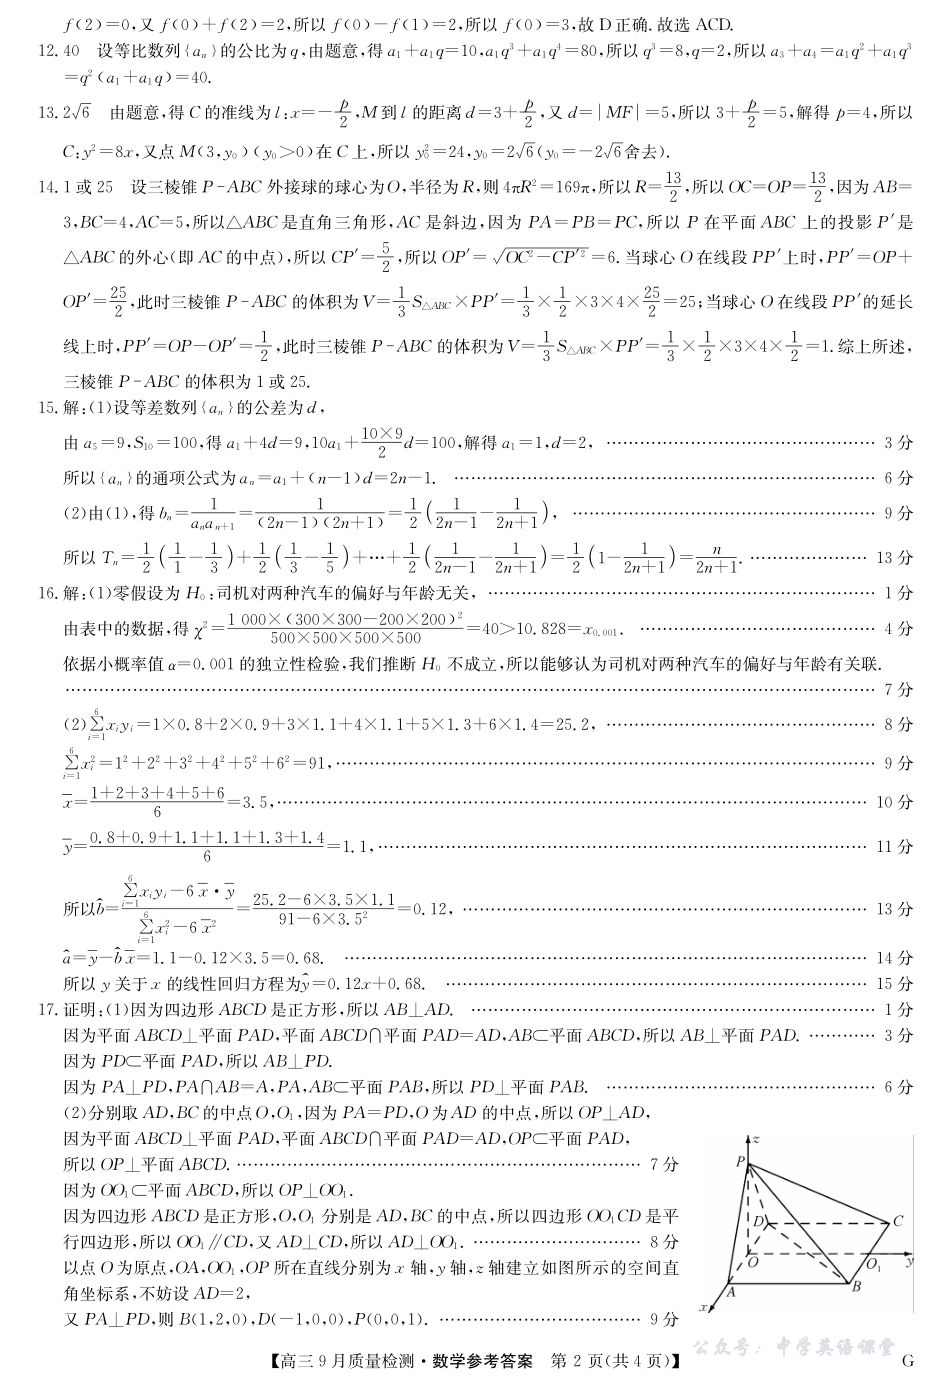 f(2)=0,又 f(0)+f(2)=2,所以 f(0)-f(1)=2,所以 f(0)=3,故 D 正确.故选 ACD.
12. 40 设等比数列{aₙ}的公比为 q,由题意,得 a₁+a₁q=10,a₁q³+a₁q⁴=80,所以 q³=8,q=2,所以 a₃+a₄=a₁q²+a₁q³
=q²(a₁+a₁q)=40.
13. 2√6 由题意,得 C 的准线为 l:x=-p/2,M 到 l 的距离 d=3+p/2,又 d=|MF|=5,所以 3+p/2=5,解得 p=4,所以
C:y²=8x,又点 M(3,y₀)(y₀>0)在 C 上,所以 y₀²=24,y₀=2√6(y₀=-2√6舍去).
14. 1 或 25 设三棱锥 P-ABC 外接球的球心为O,半径为 R,则 4πR²=169π,所以 R=13/2,所以 OC=OP=13/2,因为 AB=
3,BC=4,AC=5,所以△ABC 是直角三角形,AC 是斜边,因为 PA=PB=PC,所以 P 在平面 ABC 上的投影 P′是
△ABC 的外心(即 AC 的中点),所以 CP′=5/2,所以 OP′=√(OC²-CP′²)=6.当球心 O 在线段 PP′上时,PP′=OP+
OP′=25/2,此时三棱锥 P-ABC 的体积为 V=1/3 S△ABC×PP′=1/3×1/2×3×4×25/2=25;当球心 O 在线段 PP′的延长
线上时,PP′=OP-OP′=1/2,此时三棱锥 P-ABC 的体积为 V=1/3 S△ABC×PP′=1/3×1/2×3×4×1/2=1.综上所述,
三棱锥 P-ABC 的体积为 1 或 25.
15. 解:(1)设等差数列{aₙ}的公差为 d,
由 a₅=9,S₁₀=100,得 a₁+4d=9,10a₁+(10×9)/2 d=100,解得 a₁=1,d=2, …… 3 分
所以{aₙ}的通项公式为 aₙ=a₁+(n-1)d=2n-1. …… 6 分
(2)由(1),得 bₙ=1/(aₙaₙ₊₁)=1/((2n-1)(2n+1))=1/2(1/(2n-1)-1/(2n+1)), …… 9 分
所以 Tₙ=1/2(1/1-1/3)+1/2(1/3-1/5)+…+1/2(1/(2n-1)-1/(2n+1))=1/2(1-1/(2n+1))=n/(2n+1). …… 13 分
16. 解:(1)零假设为 H₀:司机对两种汽车的偏好与年龄无关, …… 1 分
由表中的数据,得 χ²=(1 000×(300×300-200×200)²)/(500×500×500×500)=40>10.828=x₀.₀₀₁. …… 4 分
依据小概率值 α=0.001 的独立性检验,我们推断 H₀ 不成立,所以能够认为司机对两种汽车的偏好与年龄有关联.
…… 7 分
(2)∑(i=1→6) xᵢyᵢ=1×0.8+2×0.9+3×1.1+4×1.1+5×1.3+6×1.4=25.2, …… 8 分
∑(i=1→6) xᵢ²=1²+2²+3²+4²+5²+6²=91, …… 9 分
x̄=(1+2+3+4+5+6)/6=3.5, …… 10 分
ȳ=(0.8+0.9+1.1+1.1+1.3+1.4)/6=1.1, …… 11 分
所以b̂=(∑(i=1→6) xᵢyᵢ-6x̄·ȳ)/(∑(i=1→6) xᵢ²-6x̄²)=(25.2-6×3.5×1.1)/(91-6×3.5²)=0.12, …… 13 分
â=ȳ-b̂x̄=1.1-0.12×3.5=0.68. …… 14 分
所以 y 关于 x 的线性回归方程为ŷ=0.12x+0.68. …… 15 分
17. 证明:(1)因为四边形 ABCD 是正方形,所以 AB⊥AD. …… 1 分
因为平面 ABCD⊥平面 PAD,平面 ABCD∩平面 PAD=AD,AB⊂平面 ABCD,所以 AB⊥平面 PAD. …… 3 分
因为 PD⊂平面 PAD,所以 AB⊥PD.
因为 PA⊥PD,PA∩AB=A,PA,AB⊂平面 PAB,所以 PD⊥平面 PAB. …… 6 分
(2)分别取 AD,BC 的中点 O,O₁,因为 PA=PD,O 为 AD 的中点,所以 OP⊥AD,
因为平面 ABCD⊥平面 PAD,平面 ABCD∩平面 PAD=AD,OP⊂平面 PAD,
所以 OP⊥平面 ABCD. …… 7 分
因为 OO₁⊂平面 ABCD,所以 OP⊥OO₁.
因为四边形 ABCD 是正方形,O,O₁ 分别是 AD,BC 的中点,所以四边形 OO₁CD 是平
行四边形,所以 OO₁∥CD,又 AD⊥CD,所以 AD⊥OO₁. …… 8 分
以点 O 为原点,OA,OO₁,OP 所在直线分别为 x 轴,y 轴,z 轴建立如图所示的空间直
角坐标系,不妨设 AD=2,
又 PA⊥PD,则 B(1,2,0),D(-1,0,0),P(0,0,1). …… 9 分
z
P
D
C
O
O₁
y
A
B
x
公众号:中学英语课堂
【高三 9 月质量检测·数学参考答案 第 2 页(共 4 页)】
G